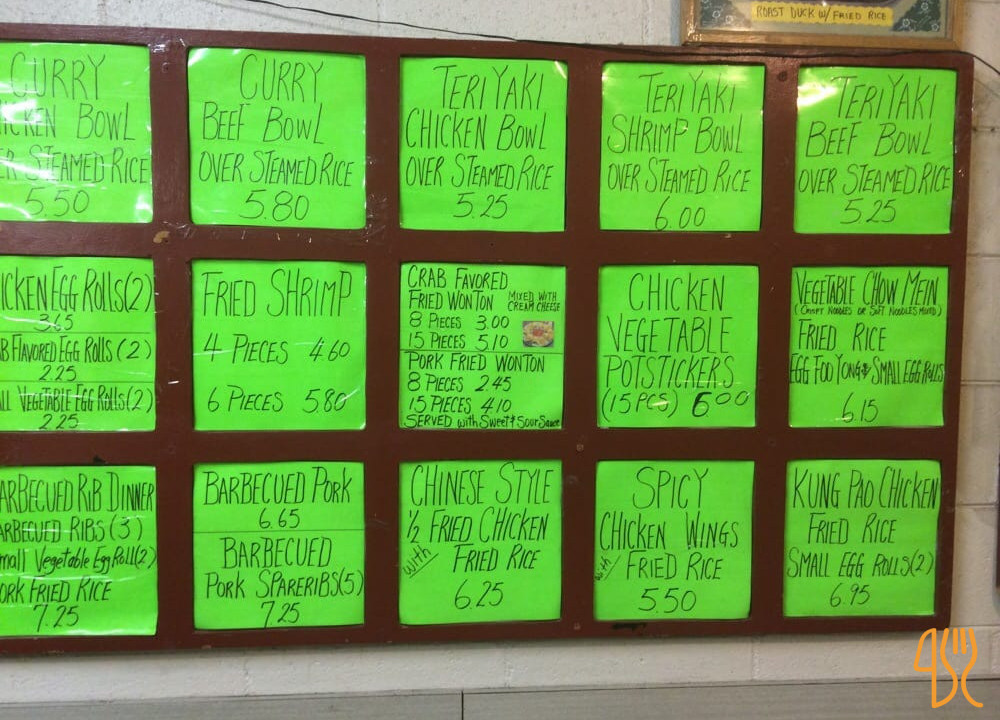 ROAST DUCK W/ FRIED RICE
CURRY
CHICKEN BOWL
OVER STEAMED RICE
5.50
CURRY
BEEF BOWL
OVER STEAMED RICE
5.80
TERIYAKI
CHICKEN BOWL
OVER STEAMED RICE
5.25
TERIYAKI
SHRIMP BOWL
OVER STEAMED RICE
6.00
TERIYAKI
BEEF BOWL
OVER STEAMED RICE
5.25
ICKEN EGG ROLLS (2)
3.65
B FLAVORED EGG ROLLS (2)
2.25
LL VEGETABLE EGG ROLLS (2)
2.25
FRIED SHRIMP
4 PIECES 4.60
6 PIECES 5.80
CRAB FAVORED
FRIED WONTON MIXED WITH CREAM CHEESE
8 PIECES 3.00
15 PIECES 5.10
PORK FRIED WONTON
8 PIECES 2.45
15 PIECES 4.10
SERVED with Sweet & Sour Sauce
CHICKEN
VEGETABLE
POTSTICKERS
(15 PCS) 6.00
VEGETABLE CHOW MEIN
(CRISPY NOODLES OR SOFT NOODLES MIXED)
FRIED RICE
EGG FOO YONG & SMALL EGG ROLLS
6.15
ARBECUED RIB DINNER
ARBECUED RIBS (3)
mall Vegetable Egg Roll (2)
ORK FRIED RICE
7.25
BARBECUED PORK
6.65
BARBECUED
PORK SPARERIBS (5)
7.25
CHINESE STYLE
1/2 FRIED CHICKEN
with FRIED RICE
6.25
SPICY
CHICKEN WINGS
with FRIED RICE
5.50
KUNG PAO CHICKEN
FRIED RICE
SMALL EGG ROLLS (2)
6.95